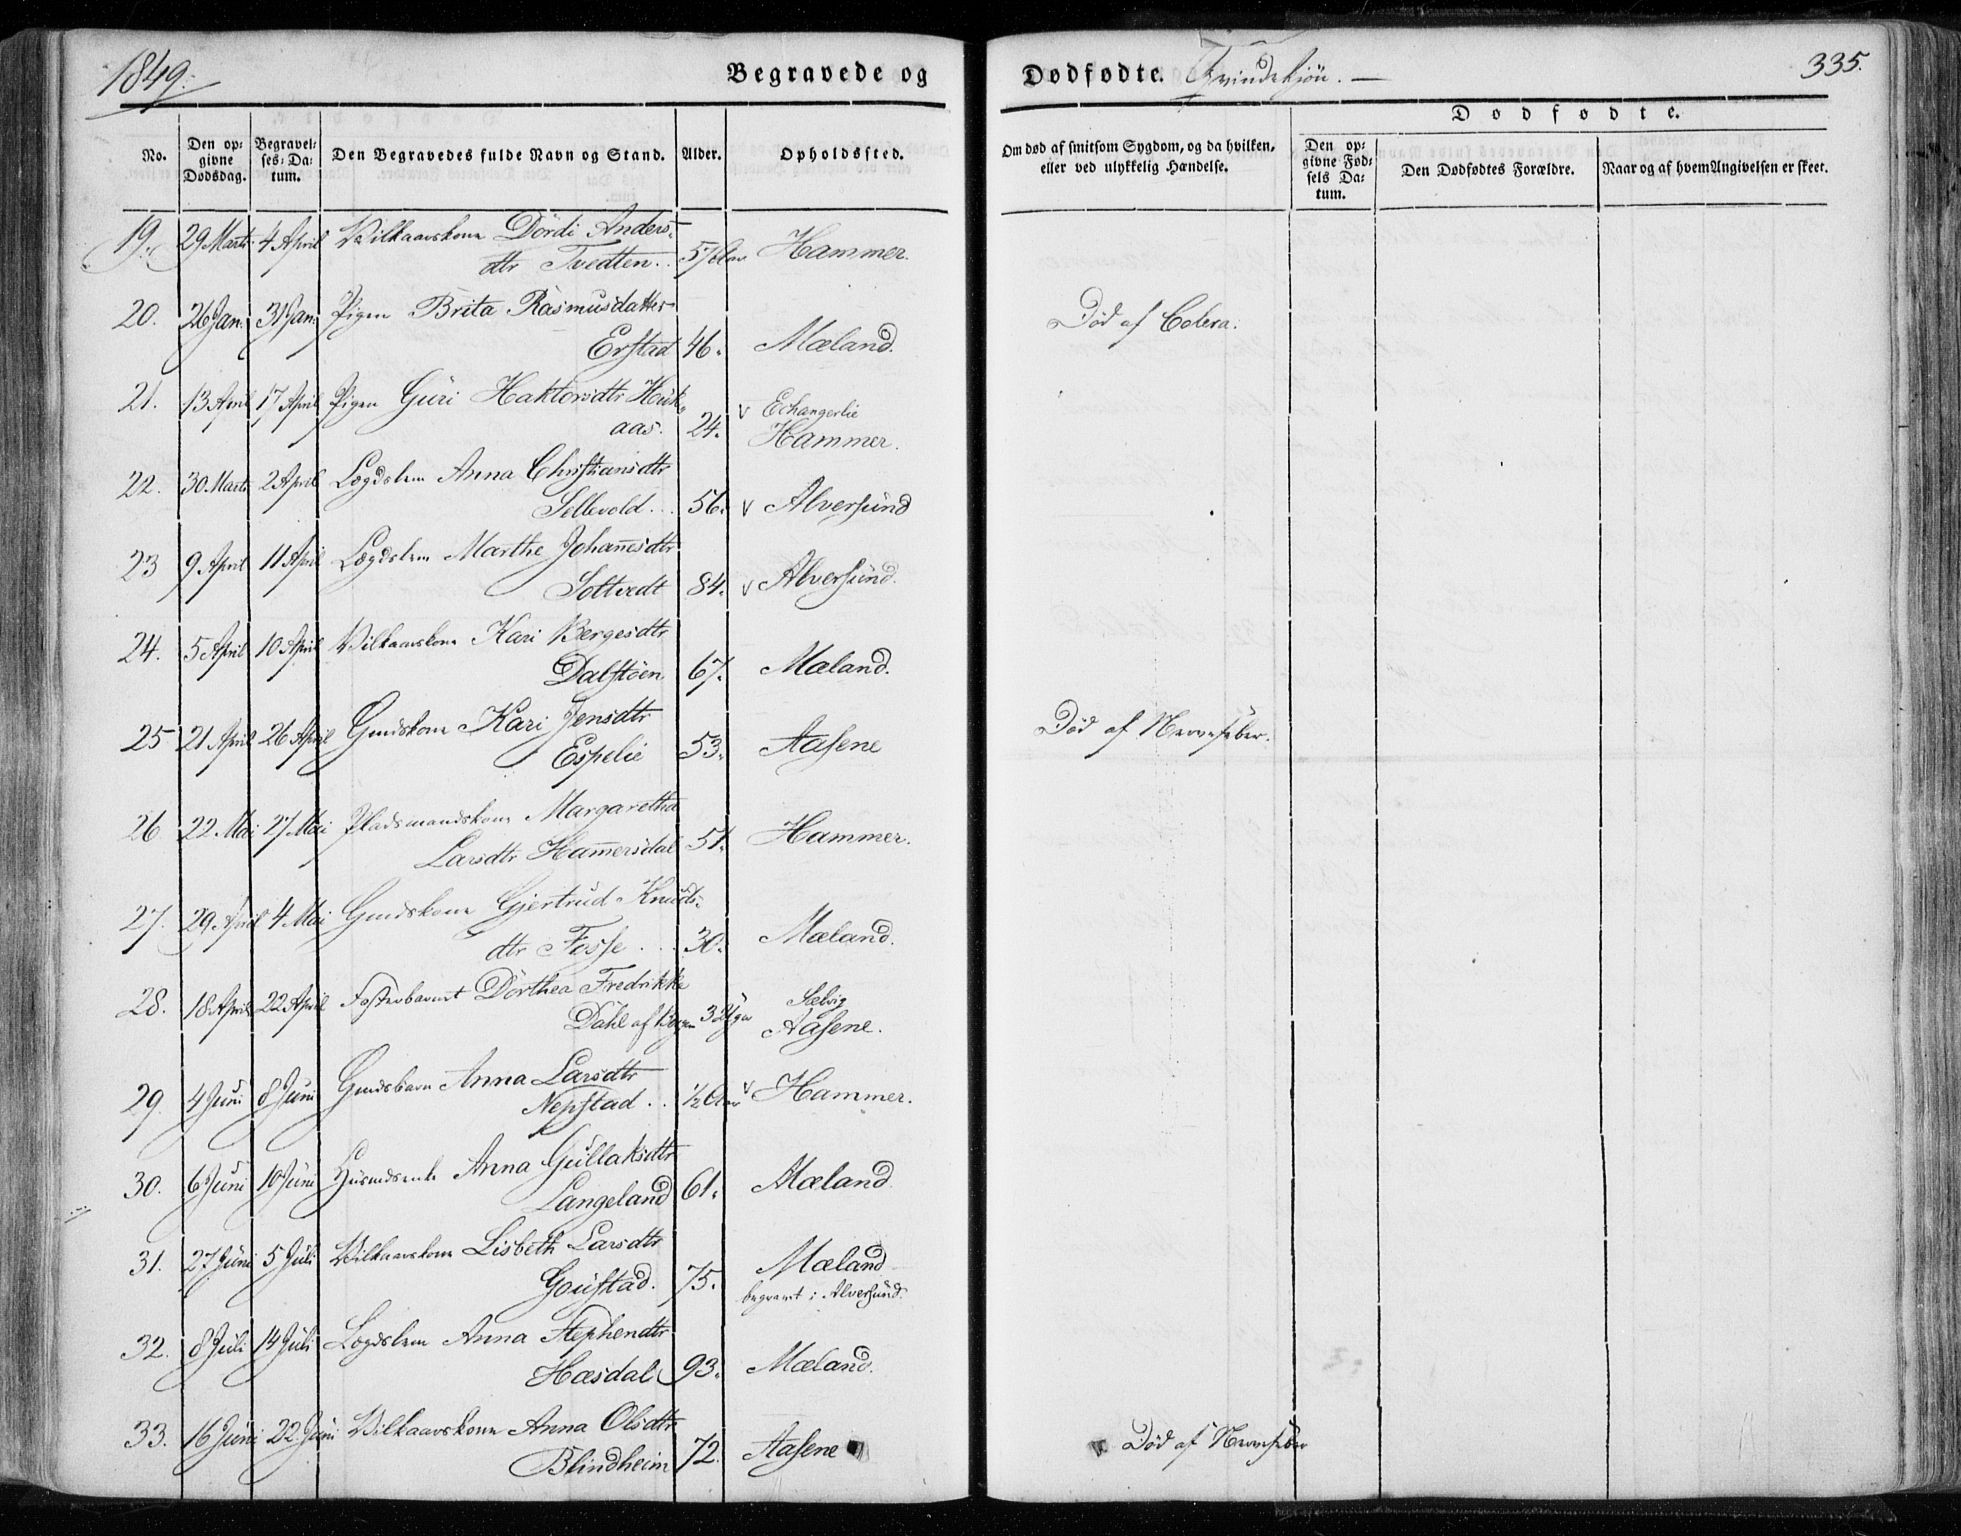 1849.
Begravede og
Dødfødte. Qvindekjön. —
335.
No.
Den op-
givne
Dødsdag.
Begravel-
ses-Da-
tum.
Den Begravedes fulde Navn og Stand.
Alder.
Opholdssted.
Om død af smitsom Sygdom, og da hvilken,
eller ved ulykkelig Hændelse.
Dødfødte.
Den op-
givne Fød-
sels Da-
tum.
Den Dødfødtes Forældre.
Naar og af hvem Angivelsen er skeet.
19. 29 Marts 4 April Vilkaarskone Dördi Anders-
dtr Tvedten. 57 Aar Hammer.
20. 26 Jan: 31 Jan: Pigen Brita Rasmusdatter Død af Colera.
Erstad 46. Mæland.
21. 13 April 17 April Pigen Guri Haktorsdtr
aas. 24. v Echangerlie
Hammer.
22. 30 Marts 2 April Lægdslem Anna Christiansdtr
Sellevold. 56. v Alversund
23 9 April 11 April Lægdslem Marthe Johannesdtr
Soltvedt 84. v Alversund.
24. 5 April 10 April Vilkaarskone Kari Bergesdtr
Dalstöen 67. Mæland.
25 21 April 26 April Gmdskone Kari Jensdtr Død af Nervefeber.
Espelie 53. Aasene
26 22 Mai 27 Mai Pladsmandskone Margaretha
Larsdtr Hamersdal 51. Hammer.
27. 29 April 4 Mai Gmdskone Gjertrud Knuds-
dtr Fosse. 30. Mæland.
28. 18 April 22 April Fosterbarnet Dorthea Fredrikke
Dahl af Bergen 3 Uger Sælvig
Aasene.
29. 4 Juni 8 Juni Gmdsbarn Anna Larsdtr
Nepstad. ½ Aar v Hammer.
30. 6 Juni 10 Juni Huusmdsenke Anna Gullaksdtr
Langeland 61. Mæland
31. 27 Juni 5 Juli Vilkaarskone Lisbeth Larsdtr
Goustad. 75. Mæland
begravet i Alversund.
32. 8 Juli 14 Juli Lægdslem Anna Stephendtr
Hæsdal 93. Mæland.
33. 16 Juni 22. Juni Vilkaarskone Anna Olsdtr Død af Nervefeber
Blindheim 72. Aasene